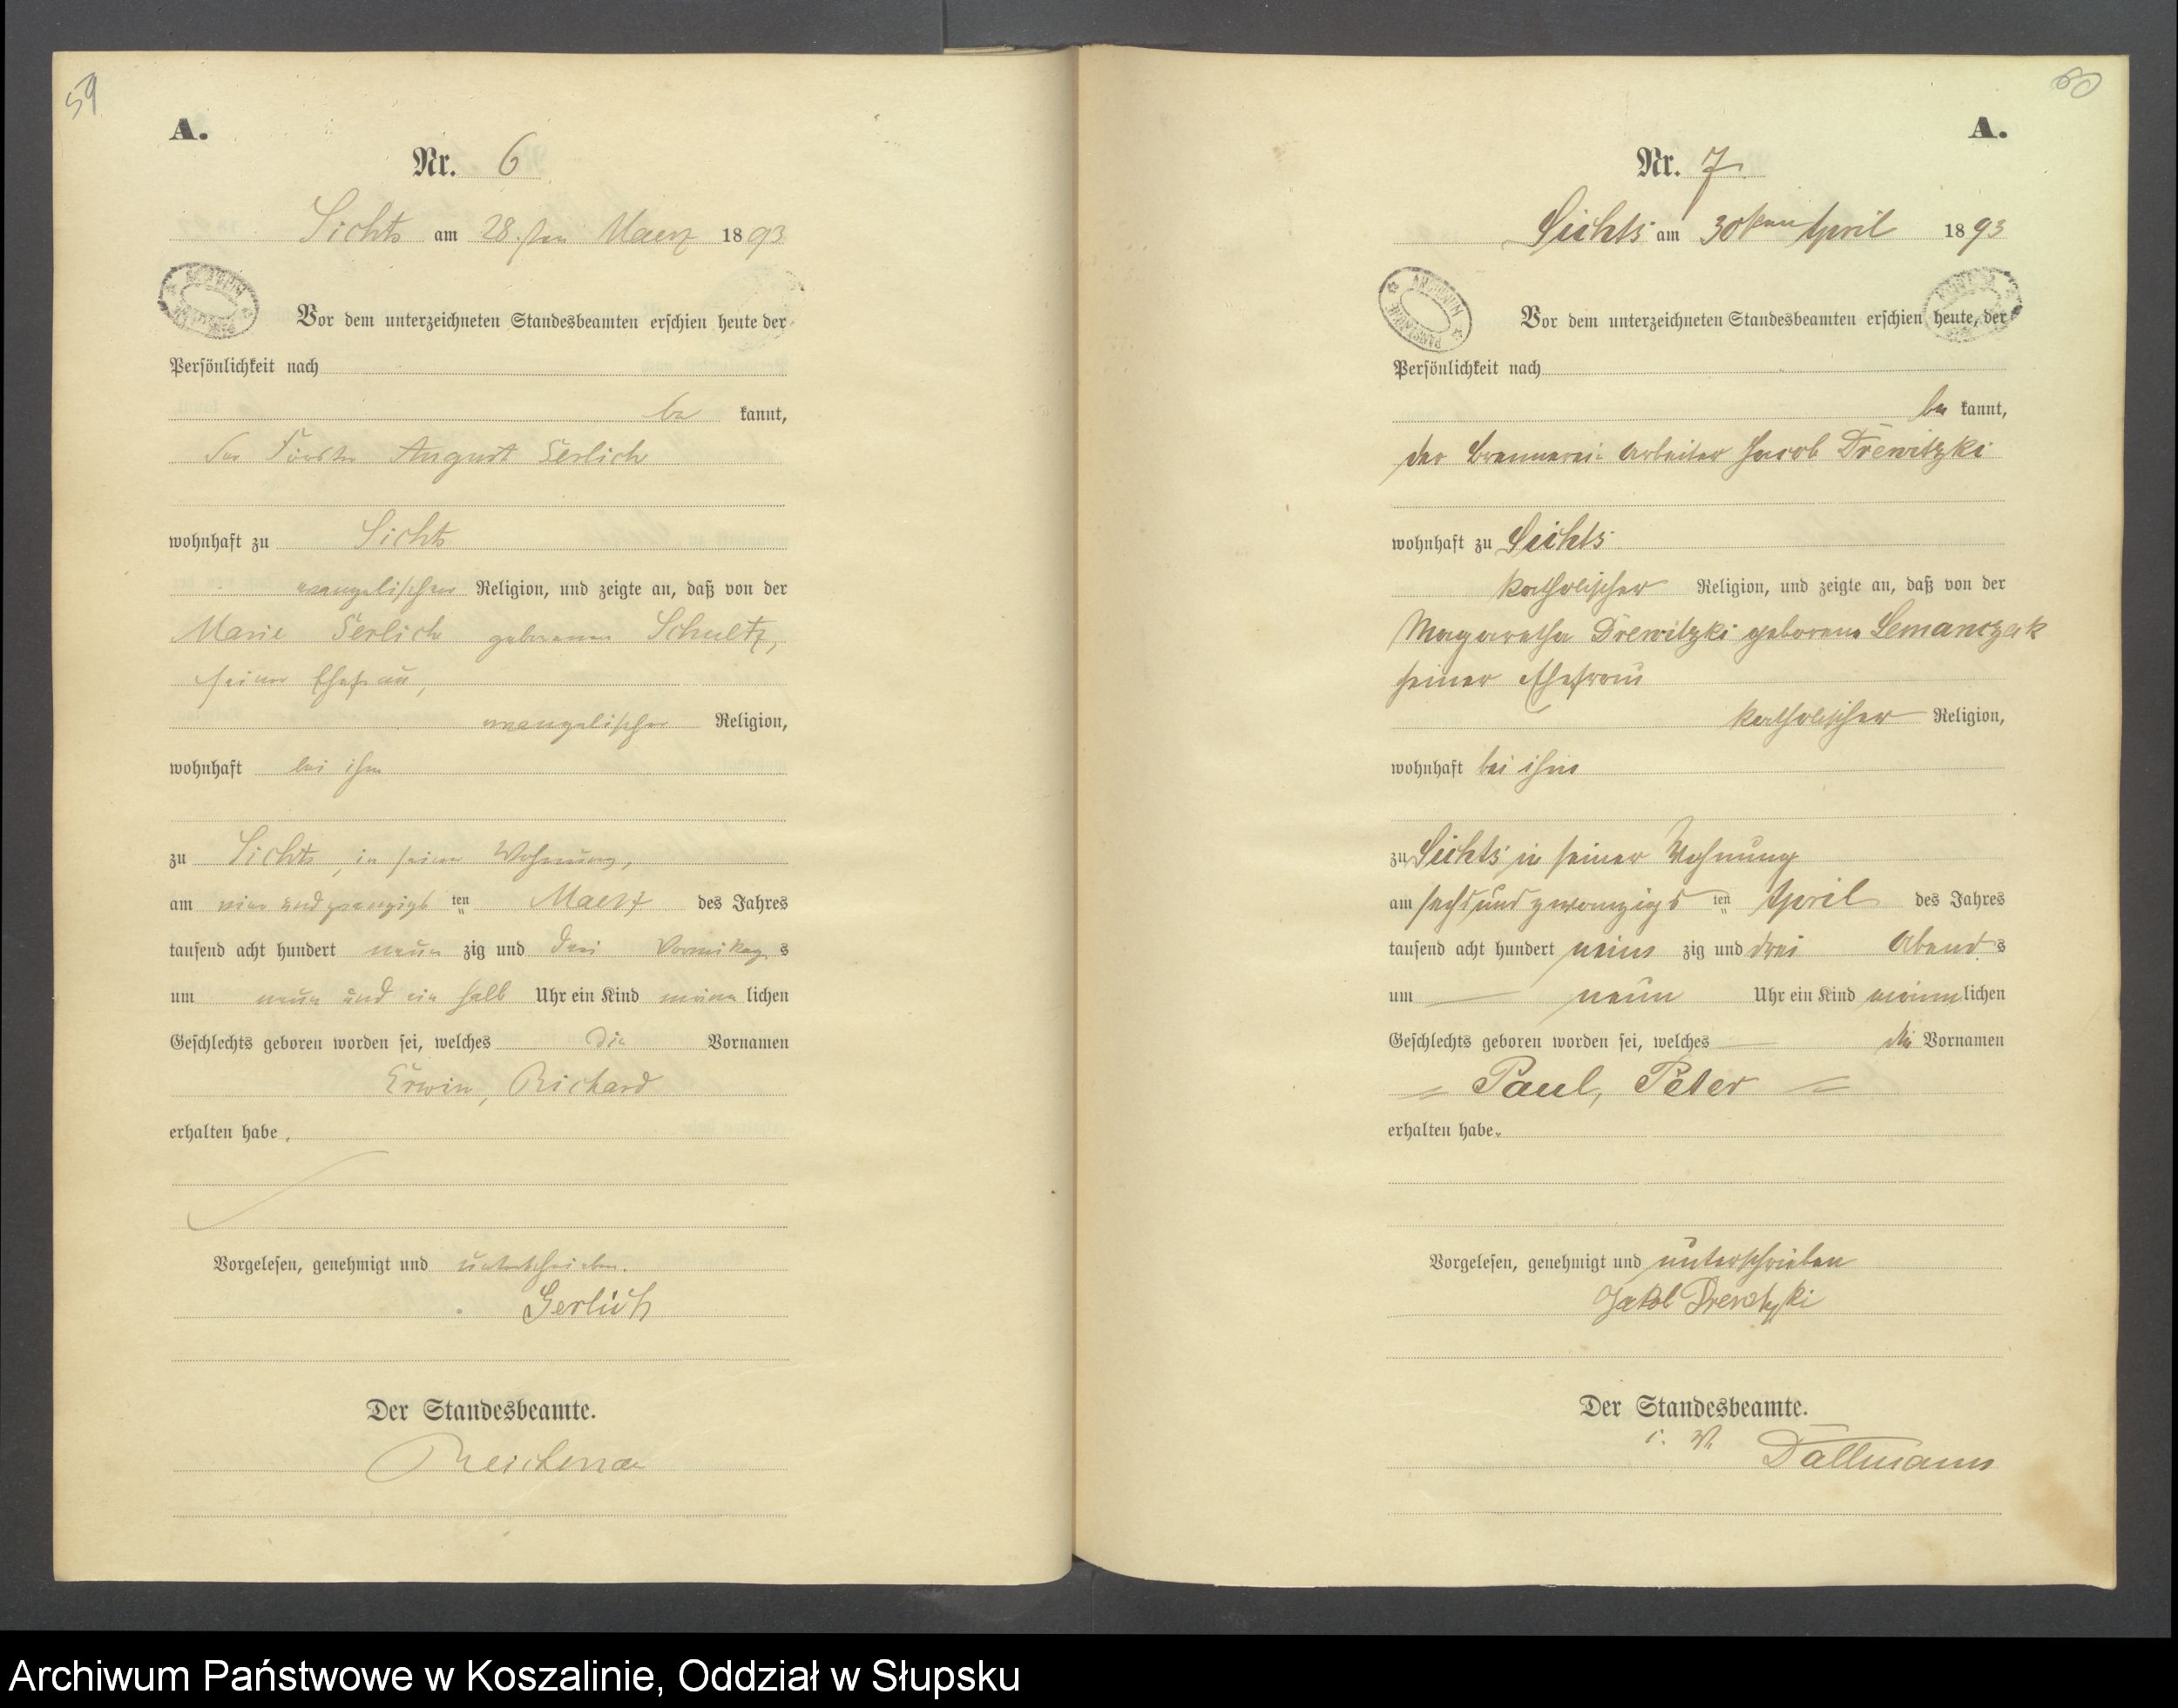 59
A.
Nr. 6
Sichts am 28. ten Maerz 1893
Vor dem unterzeichneten Standesbeamten erschien heute der
Persönlichkeit nach
be kannt,
der Förster August Gerlich
wohnhaft zu Sichts
evangelischer Religion, und zeigte an, daß von der
Marie Gerlich geborenen Schultz,
seiner Ehefrau,
evangelischer Religion,
wohnhaft bei ihm
zu Sichts, in seiner Wohnung,
am vier und zwanzigs ten Maerz des Jahres
tausend acht hundert neun zig und drei Vormittag s
um neun und ein halb Uhr ein Kind männ lichen
Geschlechts geboren worden sei, welches die Vornamen
Erwin, Richard
erhalten habe.
Vorgelesen, genehmigt und unterschrieben.
Gerlich
Der Standesbeamte.
60
A.
Nr. 7
Sichts am 30 ten April 1893
ARCHIWUM PAŃSTWOWE
Vor dem unterzeichneten Standesbeamten erschien heute, der
Persönlichkeit nach
be kannt,
der Brennerei-Arbeiter Jacob Drewitzki
wohnhaft zu Sichts
katholischer Religion, und zeigte an, daß von der
Magaretha Drewitzki geborene Lemanczak
seiner Ehefrau
katholischer Religion,
wohnhaft bei ihm
zu Sichts in seiner Wohnung
am sechs und zwanzigs ten April des Jahres
tausend acht hundert neun zig und drei Abend s
um neun Uhr ein Kind männ lichen
Geschlechts geboren worden sei, welches die Vornamen
= Paul, Peter =
erhalten habe.
Vorgelesen, genehmigt und unterschrieben
Jakob Drewitzki
Der Standesbeamte.
i. V. Dallmann
Archiwum Państwowe w Koszalinie, Oddział w Słupsku